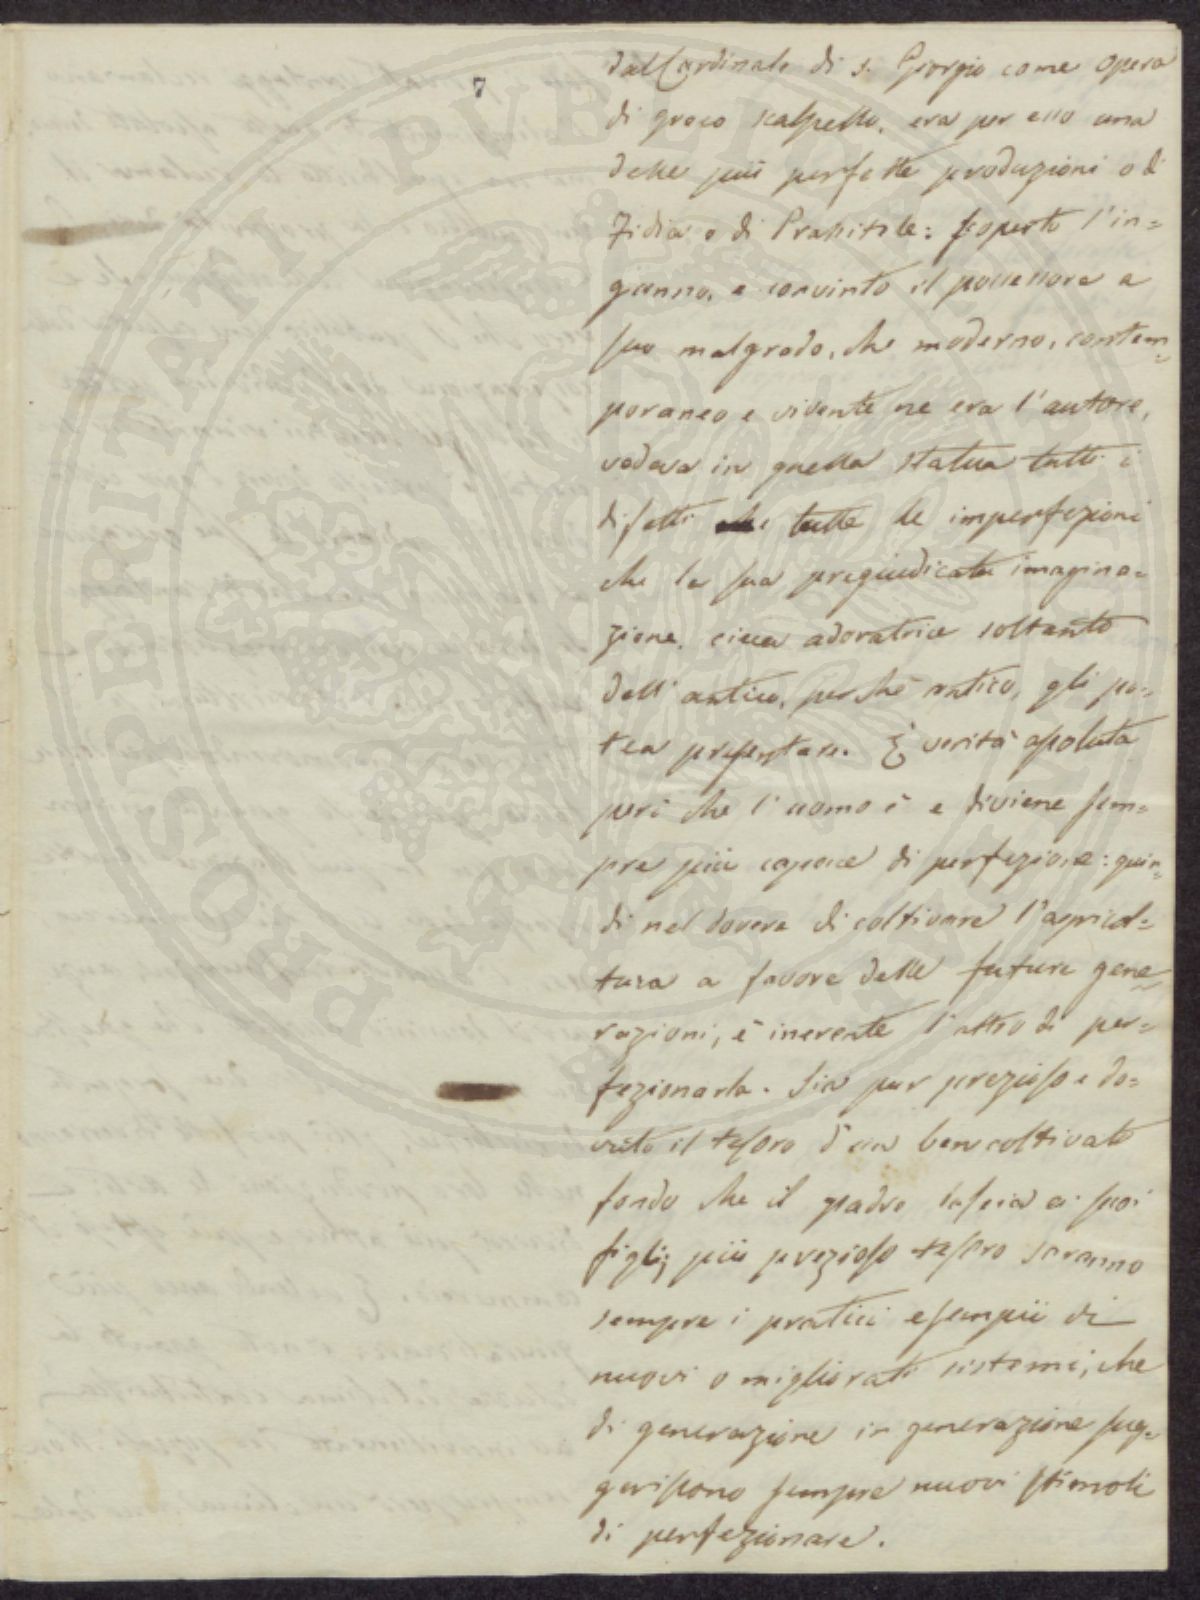 7
dal Cardinale di S. Giorgio come opera
di greco scalpello, era per esso una
delle più perfette produzioni o di
Fidia o di Prassitele: scoperto l'in=
ganno, e convinto il possessore a
suo malgrado, che moderno, contem=
poraneo e vivente ne era l'autore,
vedeva in quella statua tutti i
difetti e tutte le imperfezioni
che la sua pregiudicata imagina=
zione cieca adoratrice soltanto
dell'antico, perchè antico, gli po=
tea presentare. È verità assoluta
però che l'uomo è e diviene sem=
pre più capace di perfezione: quin=
di nel dovere di coltivare l'agricol=
tura a favore delle future gene=
razioni, è inerente l'altro di per=
fezionarla. Sia pur prezioso e do=
vuto il tesoro d'un ben coltivato
fondo che il padre lascia a' suoi
figli; più prezioso tesoro saranno
sempre i pratici esempii di
nuovi o migliorati sistemi, che
di generazione in generazione sug=
geriscono sempre nuovi stimoli
di perfezionare.
PROSPERITATI PVBLICAE